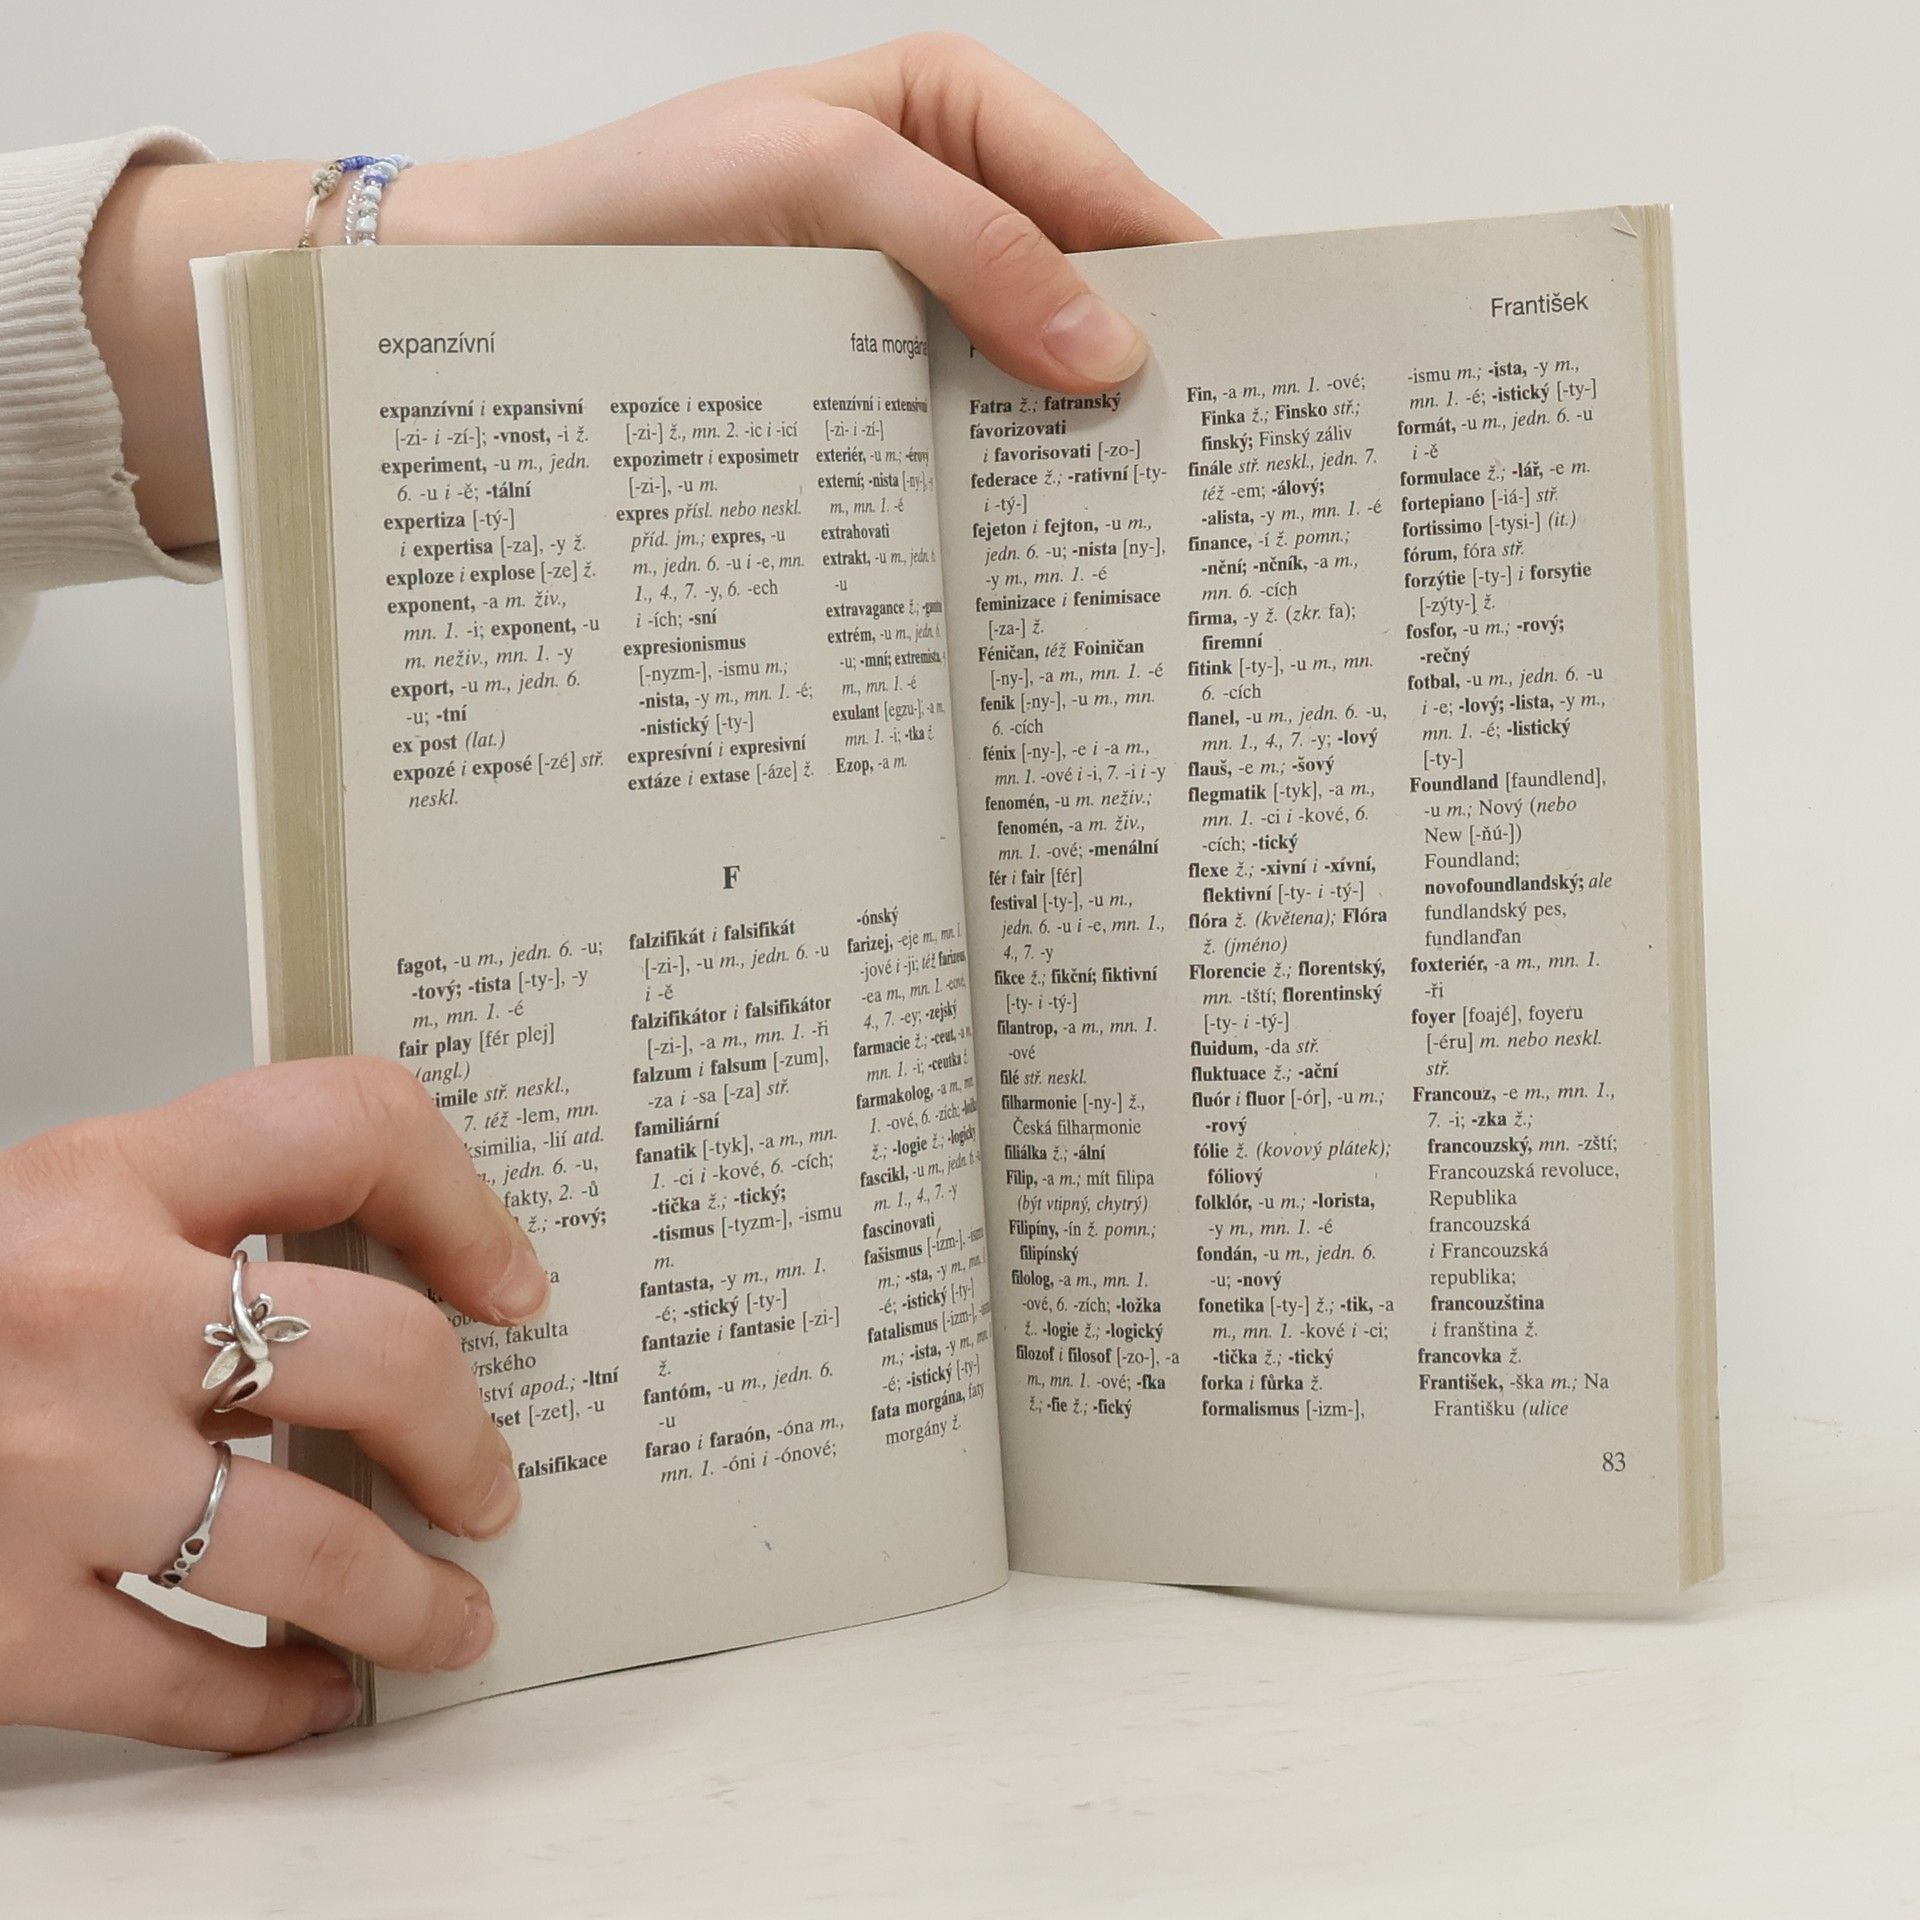 expanzívní
fata morgána
expanzívní i expansivní
[-zi- i -zí-]; -vnost, -i ž.
experiment, -u m., jedn.
6. -u i -ě; -tální
expertiza [-tý-]
i expertisa [-za], -y ž.
exploze i explose [-ze] ž.
exponent, -a m. živ.,
mn. 1. -i; exponent, -u
m. neživ., mn. 1. -y
export, -u m., jedn. 6.
-u; -tní
ex post (lat.)
expozé i exposé [-zé] stř.
neskl.
expozice i exposice
[-zi-] ž., mn. 2. -ic i -icí
expozimetr i exposimetr
[-zi-], -u m.
expres přísl. nebo neskl.
příd. jm.; expres, -u
m., jedn. 6. -u i -e, mn.
1., 4., 7. -y, 6. -ech
i -ích; -sní
expresionismus
[-nyzm-], -ismu m.;
-nista, -y m., mn. 1. -é;
-nistický [-ty-]
expresívní i expresivní
extáze i extase [-áze] ž.
extenzívní i extensivní
[-zi- i -zí-]
exteriér, -u m.; -érový
externí; -nista [-ny-],
m., mn. 1. -é
extrahovati
extrakt, -u m., jedn. 6.
-u
extravagance ž.;
extrém, -u m., jedn. 6.
-u; -mní; extremista,
m., mn. 1. -é
exulant [egzu-], -a m.,
mn. 1. -i; -tka ž.
Ezop, -a m.
F
fagot, -u m., jedn. 6. -u;
-tový; -tista [-ty-], -y
m., mn. 1. -é
fair play [fér plej]
(angl.)
stř. neskl.,
7. též -lem, mn.
-lií atd.
jedn. 6. -u,
fakty, 2. -ů
ž.; -rový;
fakulta
apod.; -ltní
[-zet], -u
falsifikace
falzifikát i falsifikát
[-zi-], -u m., jedn. 6. -u
i -ě
falzifikátor i falsifikátor
[-zi-], -a m., mn. 1. -ři
falzum i falsum [-zum],
-za i -sa [-za] stř.
familiární
fanatik [-tyk], -a m., mn.
1. -ci i -kové, 6. -cích;
-tička ž.; -tický;
-tismus [-tyzm-], -ismu
m.
fantasta, -y m., mn. 1.
-é; -stický [-ty-]
fantazie i fantasie [-zi-]
ž.
fantóm, -u m., jedn. 6.
-u
farao i faraón, -óna m.,
mn. 1. -óni i -ónové;
-ónský
farizej, -eje m., mn. 1.
-jové i -ji; též farizeus,
-ea m., mn. 1. -eové,
4., 7. -ey; -zejský
farmacie ž.; -ceut, -a m.,
mn. 1. -i; -ceutka ž.
farmakolog, -a m., mn.
1. -ové, 6. -zích;
ž.; -logie ž.; -logický
fascikl, -u m., jedn. 6.
m. 1., 4., 7. -y
fascinovati
fašismus [-izm-], -ismu
m.; -sta, -y m., mn.
-é; -istický [-ty-]
fatalismus [-izm-],
m.; -ista, -y m., mn.
-é; -istický [-ty-]
fata morgána, faty
morgány ž.
František
Fatra ž.; fatranský
favorizovati
i favorisovati [-zo-]
federace ž.; -rativní [-ty-
i -tý-]
fejeton i fejton, -u m.,
jedn. 6. -u; -nista [ny-],
-y m., mn. 1. -é
feminizace i fenimisace
[-za-] ž.
Féničan, též Foiničan
[-ny-], -a m., mn. 1. -é
fenik [-ny-], -u m., mn.
6. -cích
fénix [-ny-], -e i -a m.,
mn. 1. -ové i -i, 7. -i i -y
fenomén, -u m. neživ.;
fenomén, -a m. živ.,
mn. 1. -ové; -menální
fér i fair [fér]
festival [-ty-], -u m.,
jedn. 6. -u i -e, mn. 1.,
4., 7. -y
fikce ž.; fikční; fiktivní
[-ty- i -tý-]
filantrop, -a m., mn. 1.
-ové
filé stř. neskl.
filharmonie [-ny-] ž.,
Česká filharmonie
filiálka ž.; -ální
Filip, -a m.; mít filipa
(být vtipný, chytrý)
Filipíny, -ín ž. pomn.;
filipínský
filolog, -a m., mn. 1.
-ové, 6. -zích; -ložka
ž. -logie ž.; -logický
filozof i filosof [-zo-], -a
m., mn. 1. -ové; -fka
ž.; -fie ž.; -fický
Fin, -a m., mn. 1. -ové;
Finka ž.; Finsko stř.;
finský; Finský záliv
finále stř. neskl., jedn. 7.
též -em; -álový;
-alista, -y m., mn. 1. -é
finance, -í ž. pomn.;
-nční; -nčník, -a m.,
mn. 6. -cích
firma, -y ž. (zkr. fa);
firemní
fitink [-ty-], -u m., mn.
6. -cích
flanel, -u m., jedn. 6. -u,
mn. 1., 4., 7. -y; -lový
flauš, -e m.; -šový
flegmatik [-tyk], -a m.,
mn. 1. -ci i -kové, 6.
-cích; -tický
flexe ž.; -xivní i -xívní,
flektivní [-ty- i -tý-]
flóra ž. (květena); Flóra
ž. (jméno)
Florencie ž.; florentský,
mn. -tští; florentinský
[-ty- i -tý-]
fluidum, -da stř.
fluktuace ž.; -ační
fluór i fluor [-ór], -u m.;
-rový
fólie ž. (kovový plátek);
fóliový
folklór, -u m.; -lorista,
-y m., mn. 1. -é
fondán, -u m., jedn. 6.
-u; -nový
fonetika [-ty-] ž.; -tik, -a
m., mn. 1. -kové i -ci;
-tička ž.; -tický
forka i fůrka ž.
formalismus [-izm-],
-ismu m.; -ista, -y m.,
mn. 1. -é; -istický [-ty-]
formát, -u m., jedn. 6. -u
i -ě
formulace ž.; -lář, -e m.
fortepiano [-iá-] stř.
fortissimo [-tysi-] (it.)
fórum, fóra stř.
forzýtie [-ty-] i forsytie
[-zýty-] ž.
fosfor, -u m.; -rový;
-rečný
fotbal, -u m., jedn. 6. -u
i -e; -lový; -lista, -y m.,
mn. 1. -é; -listický
[-ty-]
Foundland [faundlend],
-u m.; Nový (nebo
New [-ňú-])
Foundland;
novofoundlandský; ale
fundlandský pes,
fundlanďan
foxteriér, -a m., mn. 1.
-ři
foyer [foajé], foyeru
[-éru] m. nebo neskl.
stř.
Francouz, -e m., mn. 1.,
7. -i; -zka ž.;
francouzský, mn. -zští;
Francouzská revoluce,
Republika
francouzská
i Francouzská
republika;
francouzština
i franština ž.
francovka ž.
František, -ška m.; Na
Františku (ulice
83